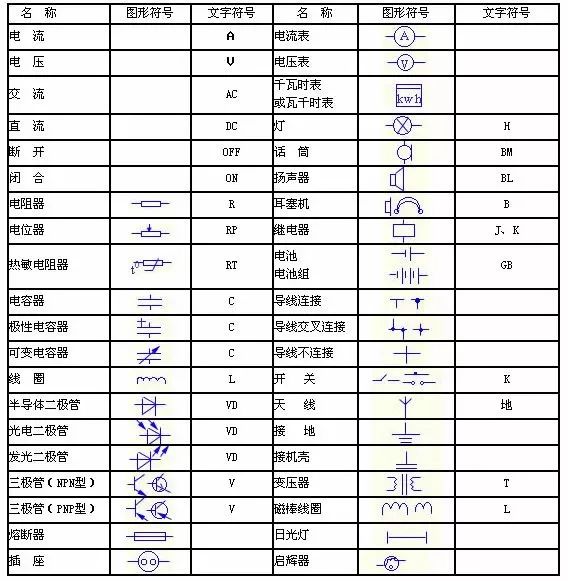 名 称 图形符号 文字符号 名 称 图形符号 文字符号
电 流 A 电流表 A
电 压 V 电压表 V
交 流 AC 千瓦时表
或瓦千时表 kwh
直 流 DC 灯 H
断 开 OFF 话 筒 BM
闭 合 ON 扬声器 BL
电阻器 R 耳塞机 B
电位器 RP 继电器 J、K
热敏电阻器 t° RT 电池
电池组 GB
电容器 C 导线连接
极性电容器 + C 导线交叉连接
可变电容器 C 导线不连接
线 圈 L 开 关 K
半导体二极管 VD 天 线 地
光电二极管 VD 接 地
发光二极管 VD 接机壳
三极管(NPN型) V 变压器 T
三极管(PNP型) V 磁棒线圈 L
熔断器 日光灯
插 座 启辉器